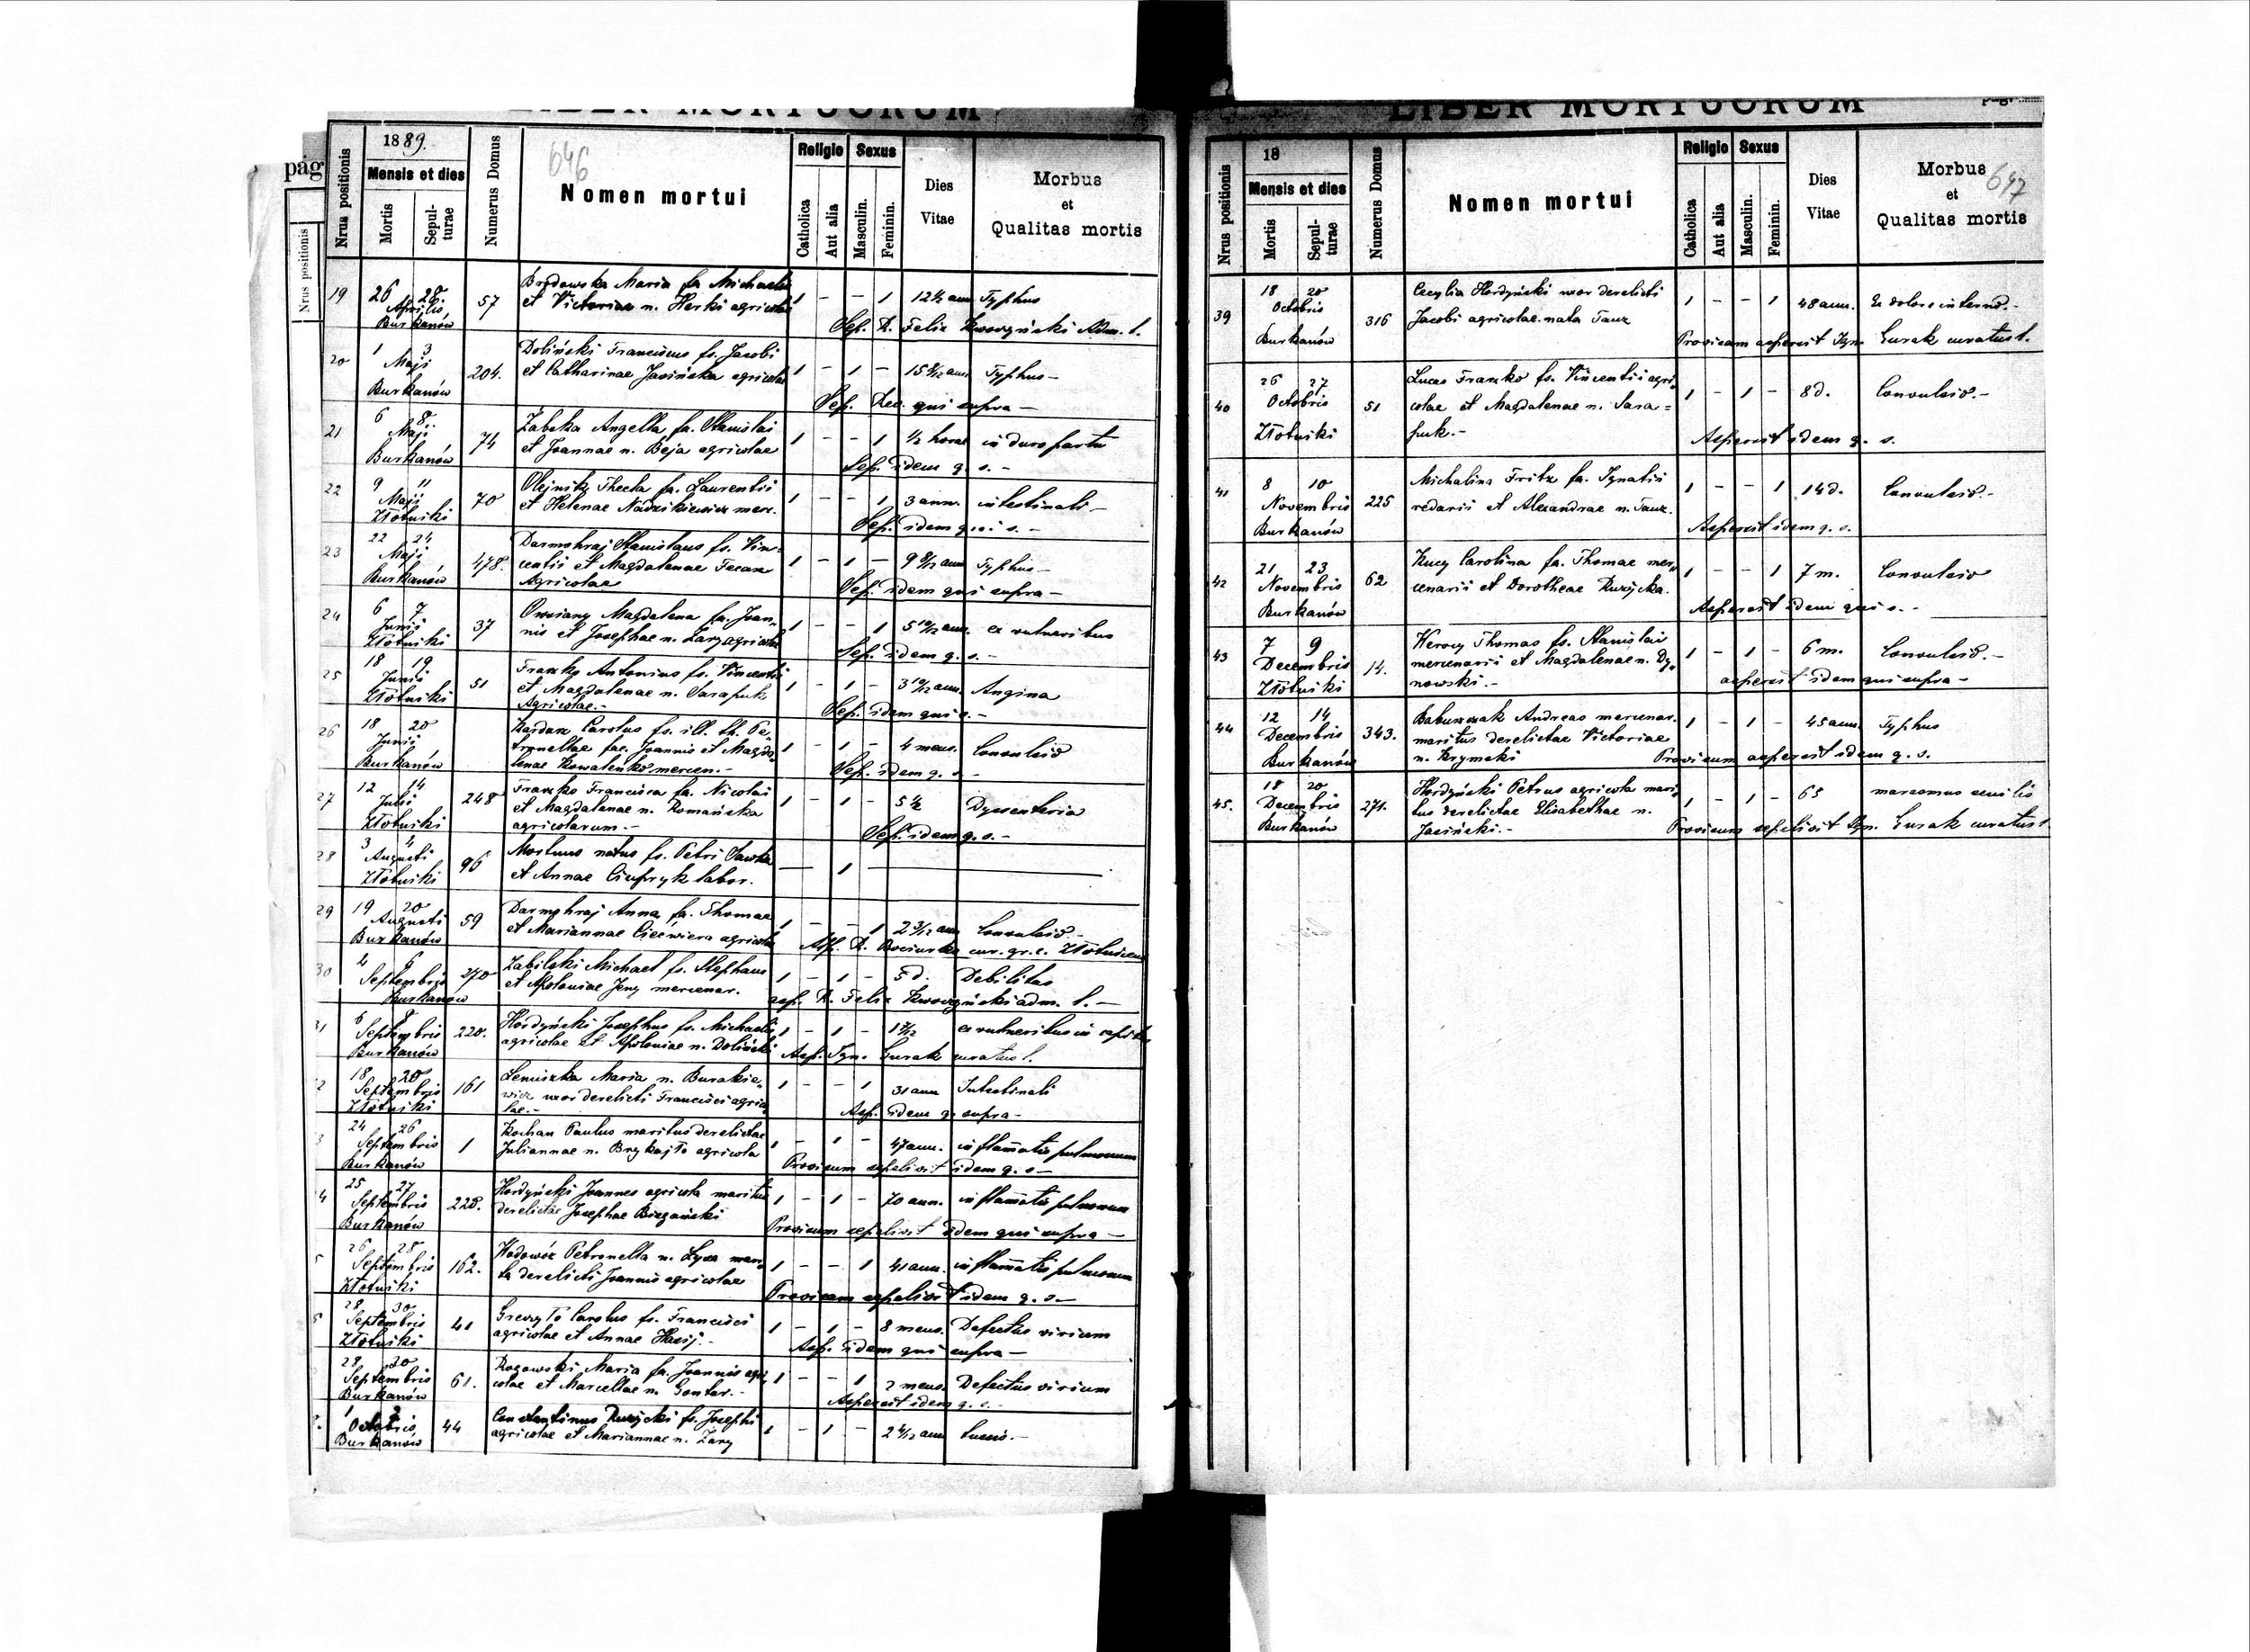 LIBER MORTUORUM
pag
Nrus positionis
1889.
646
Nrus positionis
Mensis et dies
Mortis
Sepul-turae
Numerus Domus
Nomen mortui
Religio
Catholica
Aut alia
Sexus
Masculin.
Feminin.
Dies Vitae
Morbus et Qualitas mortis
19 26 28 Aprilis Burkanów 57
Brodowska Maria fa Michaelis
et Victoriae n. Herki agricolae 1 - - 1 12½ ann Typhus
Sep. R. Felix Kworzyński Adm. l.
20 1 3 Maji Burkanów 204.
Doliński Franciscus fs. Jacobi
et Catharinae Jasińska agricolae 1 - 1 - Typhus -
Sep. qui supra -
21 6 8 Maji Burkanów 74
Zabska Angella fa. Stanislai
et Joannae n. Beja agricolae 1 - - 1 ½ horae in duro partu
Sep. idem q. s. -
22 9 11 Maji Złotniki 70
Olejnik Thecla fa. Laurentii
et Helenae merc. 1 - - 1 3 ann. intestinali -
Sep. idem qui s. -
23 22 24 Maji Burkanów 478.
Darmohraj Stanislaus fs. Vin-
centii et Magdalenae 1 - 1 - 9 8/12 ann Typhus -
Agricolae
Sep. idem qui supra -
24 6 7 Junii Złotniki 37
Magdalena fa. Joan-
nis et Josephae n. Zary agricolae 1 - - 1 5 10/12 ann. ex vulneribus
Sep. idem q. s. -
25 18 19 Junii Złotniki 51
Franzko Antonius fs. Vincentii
et Magdalenae n. Sarapuk 1 - 1 - 3 10/12 ann. Angina
Agricolae. -
Sep. idem qui s. -
26 18 20 Junii Burkanów
Carolus fs. ill. th. Pe-
tronellae fae. Joannis et Magda- 1 - 1 - 4 mens. Convulsio
lenae Kowalenko mercen. -
Sep. idem q. s. -
27 12 14 Julii Złotniki 248
Franzko Francisca fa. Nicolai
et Magdalenae n. Romańska 1 - 1 - 5½ Dyssenteria
agricolarum. -
Sep. idem q. s. -
28 3 4 Augusti Złotniki 96
Mortuus natus fs. Petri
et Annae Ciupryk labor. — 1 —
29 19 20 Augusti Burkanów 59
Darmohraj Anna fa. Thomae
et Mariannae agricolae 1 - - 1 2 3/12 ann Convulsio. -
Asp. R. cur. gr. c.
30 4 6 Septembris Burkanów 270
Zabilski Michael fs. Stephani
et Apoloniae Jeny mercenar. 1 - 1 - 5 d. Debilitas
asp. R. Felix Kworzyński adm. l. -
31 6 8 Septembris Burkanów 220.
Hordyński Josephus fs. Michaelis
agricolae et Apoloniae n. Doliński 1 - 1 - 1 7/12 ex vulneribus in
Asp. Ign. Gurak curatus l.
2 18 20 Septembris Złotniki 161
Maria n. Burakie-
wicz uxor derelicti Francisci agrico- 1 - - 1 31 ann Intestinali
lae. -
Asp. idem q. supra -
3 24 26 Septembris Burkanów 1
Kochan Paulus maritus derelictae
Juliannae n. Brykajło agricola 1 - 1 - 47 ann. inflamatio pulmonum
Provisum sepelivit idem q. s -
4 25 27 Septembris Burkanów 228.
Hordyński Joannes agricola maritus
derelictae Josephae Biegański 1 - 1 - 70 ann. inflamatio pulmonum
Provisum sepelivit idem qui supra -
5 26 28 Septembris Złotniki 162.
Petronella n. Łysa mari-
ta derelicti Joannis agricolae 1 - - 1 41 ann. inflamatio pulmonum
Provisam sepelivit idem q. s -
6 28 30 Septembris Złotniki 41
Carolus fs. Francisci
agricolae et Annae 1 - 1 - 8 mens. Defectus virium
Asp. idem qui supra -
28 30 Septembris Burkanów 61.
Rogowski Maria fa. Joannis agri-
colae et Marcellae n. Gontar. - 1 - - 1 2 mens. Defectus virium
Aspersit idem q. s. -
1 2 Octobris Burkanów 44
Constantinus Ruzycki fs. Josephi
agricolae et Mariannae n. Zary 1 - 1 - 2 4/12 ann tussis. -
LIBER MORTUORUM
pag.
18
647
Nrus positionis
Mensis et dies
Mortis
Sepul-turae
Numerus Domus
Nomen mortui
Religio
Catholica
Aut alia
Sexus
Masculin.
Feminin.
Dies Vitae
Morbus et Qualitas mortis
39 18 20 Octobris Burkanów 316
Cecylia Hordyński uxor derelicti
Jacobi agricolae nata Tauz 1 - - 1 48 ann. Ex dolore interno. -
Provisam aspersit Ign. Gurak curatus l.
40 26 27 Octobris Złotniki 51
Lucas Franzko fs. Vincentii agri-
colae et Magdalenae n. Sara= 1 - 1 - 8 d. Convulsio. -
puk. -
Aspersit idem q. s.
41 8 10 Novembris Burkanów 225
Michalina Fritz fa. Ignatii
redarii et Alexandrae n. Tauz. 1 - - 1 14 d. Convulsio. -
Aspersit idem q. s.
42 21 23 Novembris Burkanów 62
Kucy Carolina fa. Thomae mer-
cenarii et Dorotheae Ruzycka. 1 - - 1 7 m. Convulsio
Aspersit idem qui s. -
43 7 9 Decembris Złotniki 14.
Thomas fs. Stanislai
mercenarii et Magdalenae n. Dy- 1 - 1 - 6 m. Convulsio. -
nowski. -
aspersit idem qui supra -
44 12 14 Decembris Burkanów 343.
Andreas mercenar.
maritus derelictae Victoriae 1 - 1 - 45 ann. Typhus
n. Krymski
Provisum aspersit idem q. s.
45. 18 20 Decembris Burkanów 271.
Hordyński Petrus agricola mari-
tus derelictae Elisabethae n. 1 - 1 - 65 marasmus senilis
Jasiński. -
Provisum sepelivit Ign. Gurak curatus l